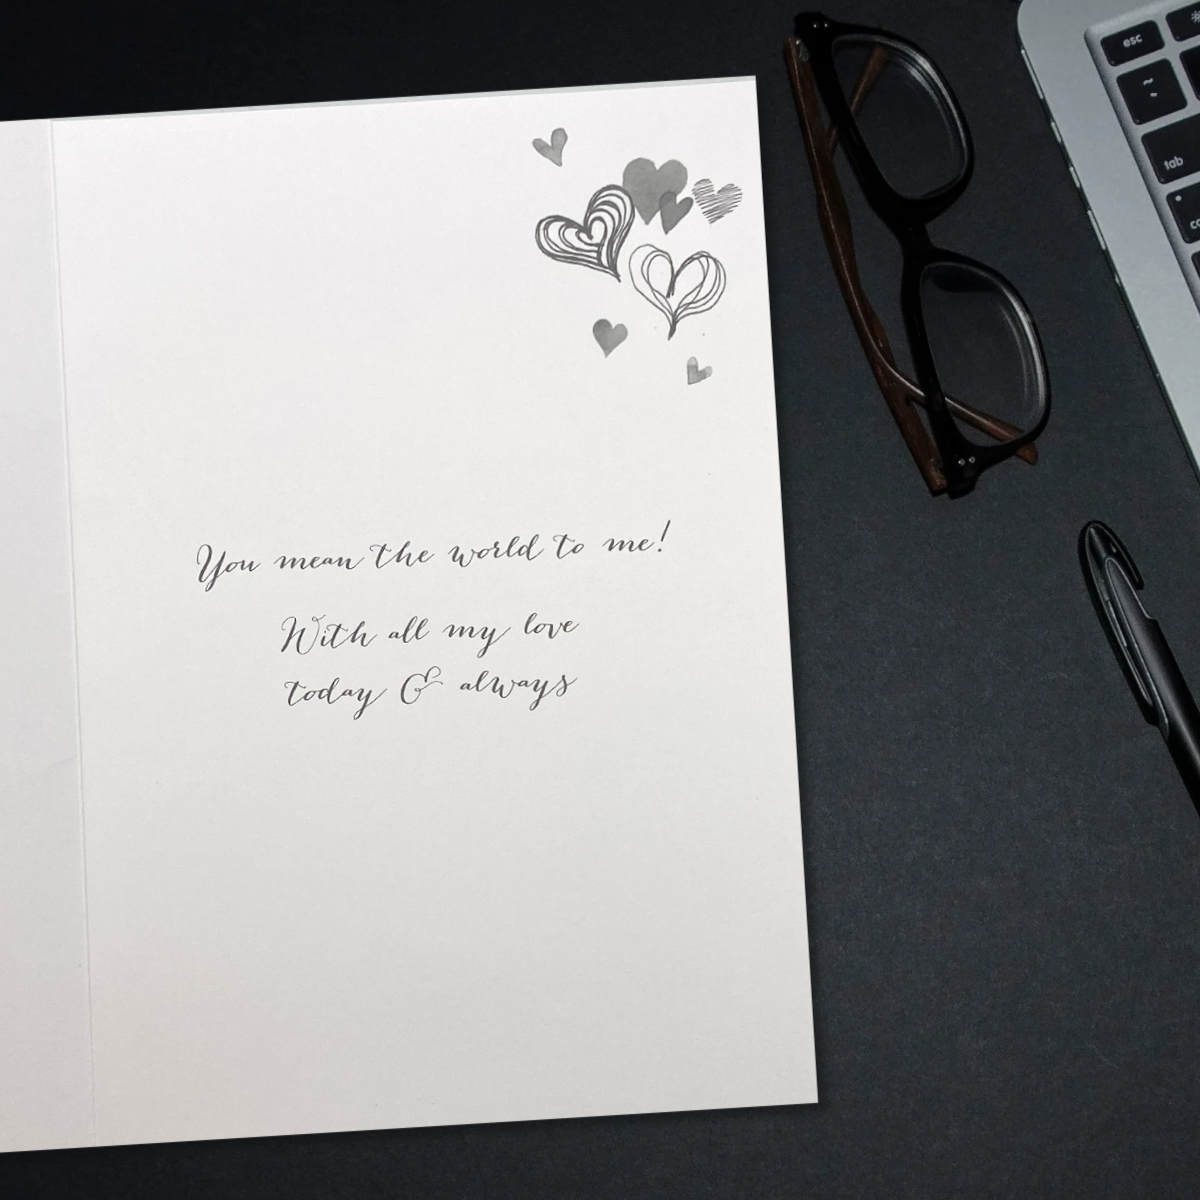 You mean the world to me!
With all my love
today & always
esc
~
tab